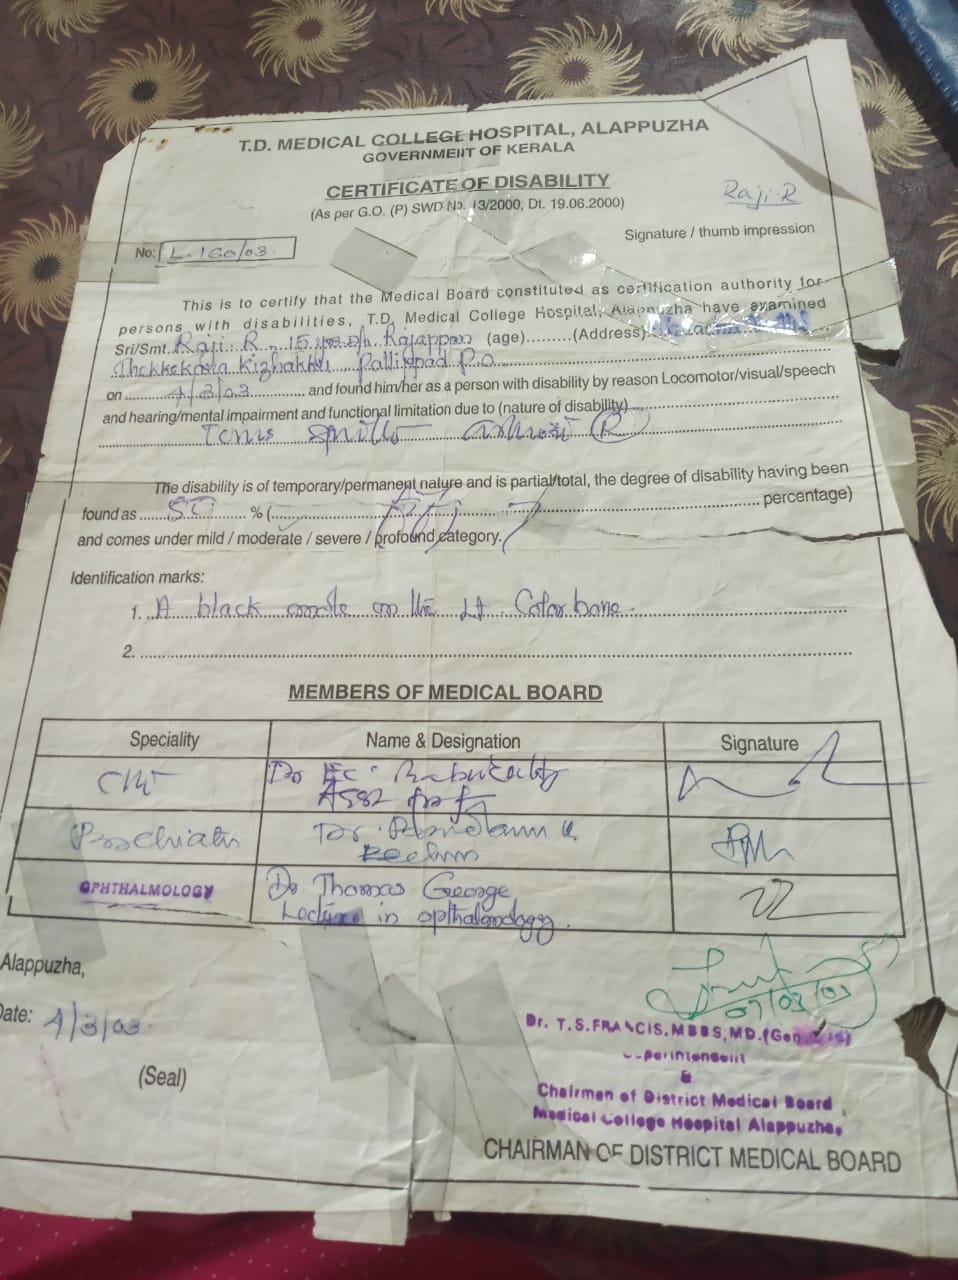 T.D. MEDICAL COLLEGE HOSPITAL, ALAPPUZHA
GOVERNMENT OF KERALA
CERTIFICATE OF DISABILITY
(As per G.O. (P) SWD No. 13/2000, Dt. 19.06.2000)
Raji. R
Signature / thumb impression
No: L-160/03.
This is to certify that the Medical Board constituted as certification authority for
persons with disabilities, T.D. Medical College Hospital, Alappuzha have examined
Sri/Smt. Raji. R. 15 Rajappan (age)......... (Address)
Kizhakkel Pallippad P.o
on 4/3/03 and found him/her as a person with disability by reason Locomotor/visual/speech
and hearing/mental impairment and functional limitation due to (nature of disability)
(R)
The disability is of temporary/permanent nature and is partial/total, the degree of disability having been
found as 50 % ( percentage)
and comes under mild / moderate / severe / profound category.
Identification marks:
1. A black mole on the Lt Colar bone.
2.
MEMBERS OF MEDICAL BOARD
Speciality Name & Designation Signature
Dr
OPHTHALMOLOGY Dr. Thomas George
Lecturer in opthalmology.
Alappuzha,
Date: 4/3/03
(Seal)
07/03/03
Dr. T.S.FRANCIS.MBBS,MD.
&
Chairman of District Medical Board
Medical College Hospital Alappuzha.
CHAIRMAN OF DISTRICT MEDICAL BOARD